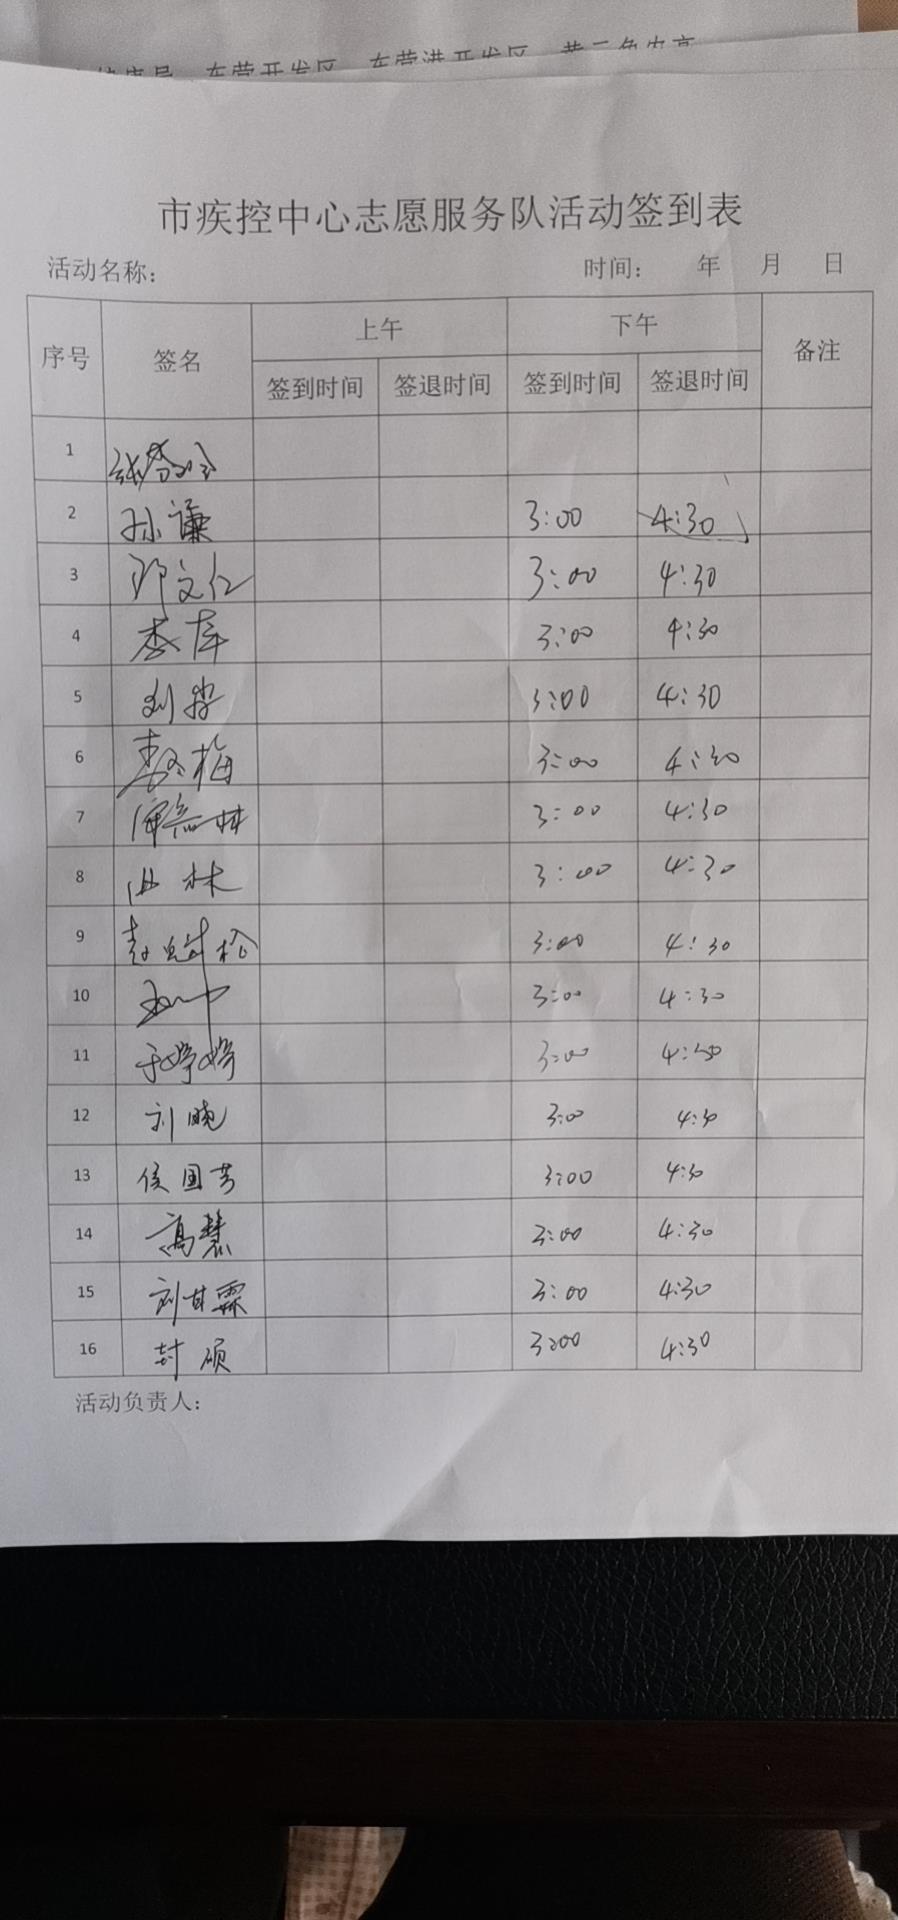 东营开发区 东营港开发区
市疾控中心志愿服务队活动签到表
活动名称： 时间： 年 月 日
序号 签名 上午 下午 备注
签到时间 签退时间 签到时间 签退时间
1
2 孙谦 3:00 4:30
3 邓文仁 3:00 4:30
4 3:00 4:30
5 刘 3:00 4:30
6 梅 3:00 4:30
7 林 3:00 4:30
8 林 3:00 4:30
9 松 3:00 4:30
10 3:00 4:30
11 于婷婷 3:00 4:30
12 刘晓 3:00 4:30
13 侯国芳 3:00 4:30
14 高慧 3:00 4:30
15 刘甘霖 3:00 4:30
16 封硕 3:00 4:30
活动负责人：